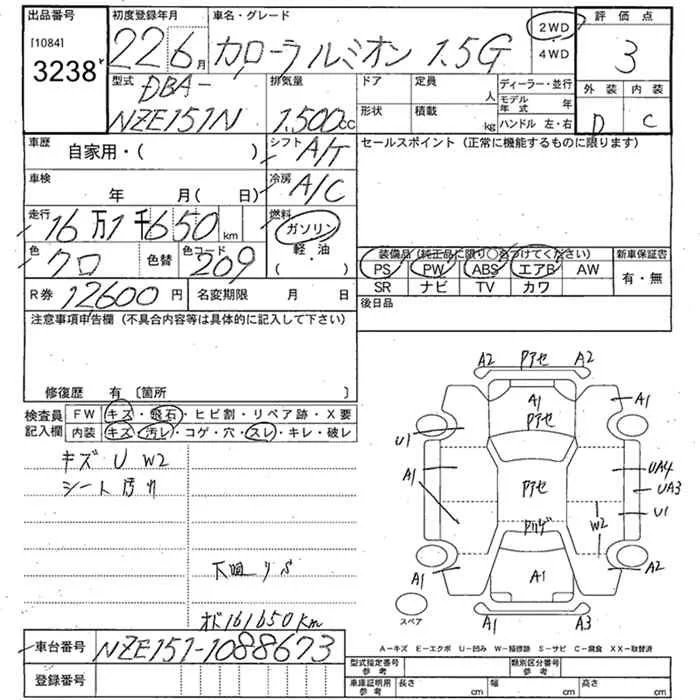 出品番号
[1084]
3238
初度登録年月
22 6月
車名・グレード
カローラルミオン 1.5G
2WD
4WD
評価点
3
外装 内装
D C
型式
DBA-
NZE151N
排気量
1,500cc
ドア
形状
定員 人
積載 kg
ディーラー・並行
モデル年式 年
ハンドル 左・右
車歴
自家用・( )
シフト
A/T
セールスポイント (正常に機能するものに限ります)
車検
年 月( 日)
冷房
A/C
走行
16万1千650km
燃料
ガソリン
軽・油
( )
色
クロ
色替
色コード
209
装備品(純正品に限り○をつけてください)
新車保証書
PS PW ABS エアB AW
有・無
SR ナビ TV カワ
R券 12600円
名変期限 月 日
後日品
注意事項申告欄 (不具合内容等は具体的に記入して下さい)
修復歴 有 〔箇所 〕
検査員
記入欄
FW キズ・飛石・ヒビ割・リペア跡・X要
内装 キズ・汚レ・コゲ・穴・スレ・キレ・破レ
キズ U W2
シート汚れ
下廻りS
オド161650km
車台番号 NZE151-1088673
登録番号
A2 Pアセ A2
A1
Pアセ
A1
U1
A1
Pアセ
UA4
UA3
U1
W2
A1
A1
A2
スペア
A1 A3
A-キズ E-エクボ U-凹み W-補修跡 S-サビ C-腐食 XX-取替済
型式指定番号
参考
類別区分番号
参考
車庫証明用
参考
長さ cm
幅 cm
高さ cm